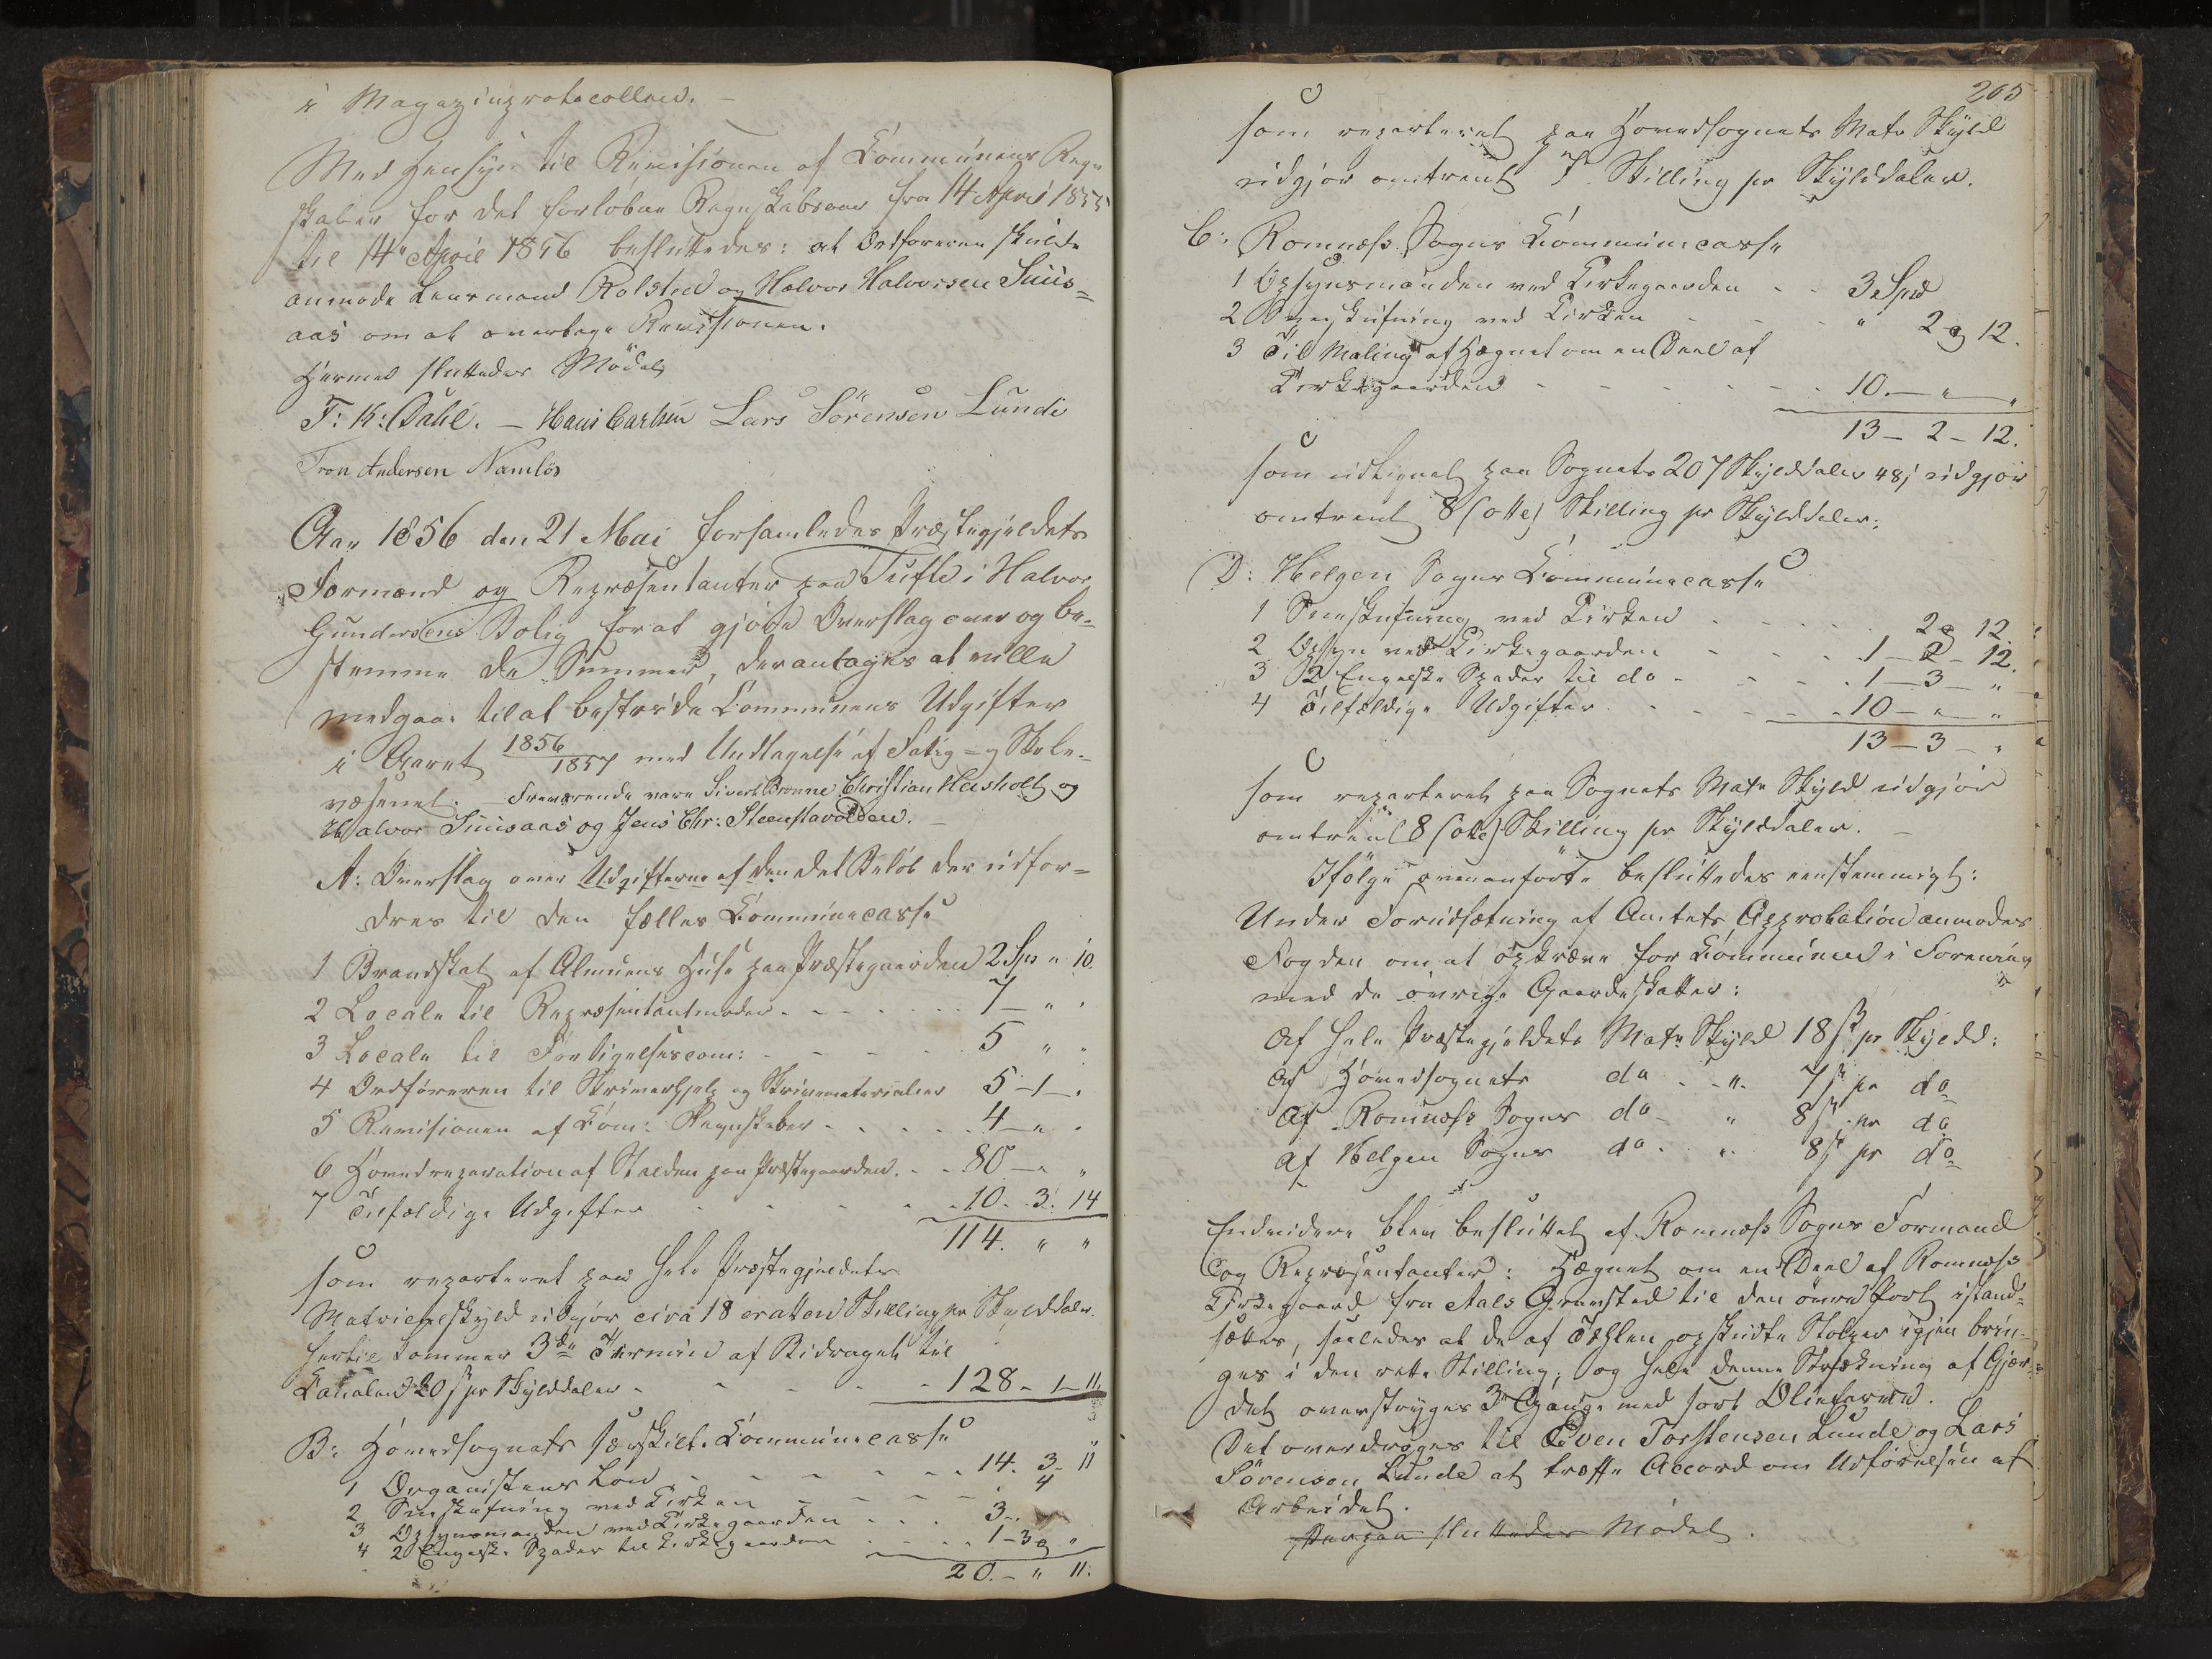 i Magazinprotocollen. –
Med Hensyn til Revisionen af Communens Regn
skaber for det forløbne Regnskabsaar fra 14 April 1855
til 14de April 1856 besluttedes: at Ordføreren skulde
anmode Lensmand Rolsted og Halvor Halvorsen Suus=
aas om at overtage Revisionen.
Hermed sluttedes Mødet
T: K: Dahl. – Hans Carlsen Lars Sörensen Lunde
Tron Andersen Namlös
Aar 1856 den 21 Mai forsamledes Præstegjeldets
Formænd og Repræsentanter paa Tufte i Halvor
Gundersens Bolig for at gjøre Overslag over og be-
stemme de Summer, der antages at ville
medgaae til at bestride Communens Udgifter
i Aaret 1856/1857 med Undtagelse af Fattig- og Skole-
væsenet. Fraværende vare Sivert Bronne Christian Hersholt og
Halvor Suusaas og Jens Chr: Steenstavolden. –
A: Overslag over Udgifterne af den det Beløb der udfor=
dres til den fælles Communecasse
1 Brandskat af Almuens Huse paa Præstegaarden 2 Spd " 10.
2 Locale til Repræsentantmøder - - - - - - - 7 – " .
3 Locale til Forligelsescom: - - - - - 5 " "
4 Ordføreren til Skriverhjelp og Skrivematerialier 5 – 1 – .
5 Revisionen af Com: Regnskaber - - - - - - 4 – " .
6 Hovedreparation af Stalden paa Præstegaarden. - - 80 – " "
7 Tilfældige Udgifter - - - - - 10. - 3. 14
114. " "
som reparteret paa hele Præstegjeldets
Matriculskyld udgjør circa 18 eratten Skilling pr Skylddaler.
hertil kommer 3die Termin af Bidraget til
Canalen 20 s pr Skylddaler - - - - - - 128 - 1 – 11.
B: Hovedsognets særskilte Communecasse
1 Organistens Løn - - - - - - - 14. 3 – 11
2 Sneeskufning ved Kirken - - - - - . 4
3 Opsynsmanden ved Kirkegaarden - - - 3 - .
4 2 Engelske Spader til Kirkegaarden - - - - 1 - 3 "
20. – " 11.
205
som reparteret paa Hovedsognets Matr Skyld
udgjør omtrent 7 Skilling pr Skylddaler.
C: Romnæss Sogns Communecasse
1 Opsynsmanden ved Kirkegaarden - - 3 Spd
2 Sneeskufning ved Kirken - - - - " 2 12.
3 Til Maling af Hegnet om en Deel af
Kirkegaarden - - - - - - - 10. – " – "
13 – 2 – 12.
som udlignet paa Sognets 207 Skylddaler 48 s udgjør
omtrent 8 (otte) Skilling pr Skylddaler.
D: Helgen Sogns Communecasse
1 Sneeskufning ved Kirken - - - - - 2 12.
2 Opsyn ved Kirkegaarden - - - 1 – 2 – 12.
3 2 Engelske Spader til do - - - - 1 – 3 – "
4 Tilfældige Udgifter - - - - - 10 – " "
13 – 3 – "
som reparteret paa Sognets Matr Skyld udgjør
omtrent 8 (otte) Skilling pr Skylddaler. –
Ifølge ovenanførte besluttedes eenstemmigt:
Under Forudsætning af Amtets Approbation anmodes
Fogden om at opkræve for Communen i Forening
med de øvrige Gaardeskatter:
Af hele Præstegjeldets Matr Skyld 18 s pr Skyldd:
Af Hovedsognets do - " - 7 s pr do
Af Romnæss Sogns do - " 8 s pr do
Af Helgen Sogns do - " 8 s pr do
Endvidere blev besluttet af Romnæss Sogns Formænd
og Repræsentanter: Hegnet om en Deel af Romnæss
Kirkegaard fra Aals Gravsted til den øvre Port istand=
sættes, saaledes at de af Tæhlen opskudte Stolper igjen brin-
ges i den rette Stilling, og hele denne Strækning af Gjær=
det overstryges 3 Gange med sort Oliefarve.
Det overdroges til Even Torstensen Lunde og Lars
Sörensen Lunde at træffe Accord om Udførelsen af
Arbeidet.
Derpaa sluttedes Mødet.